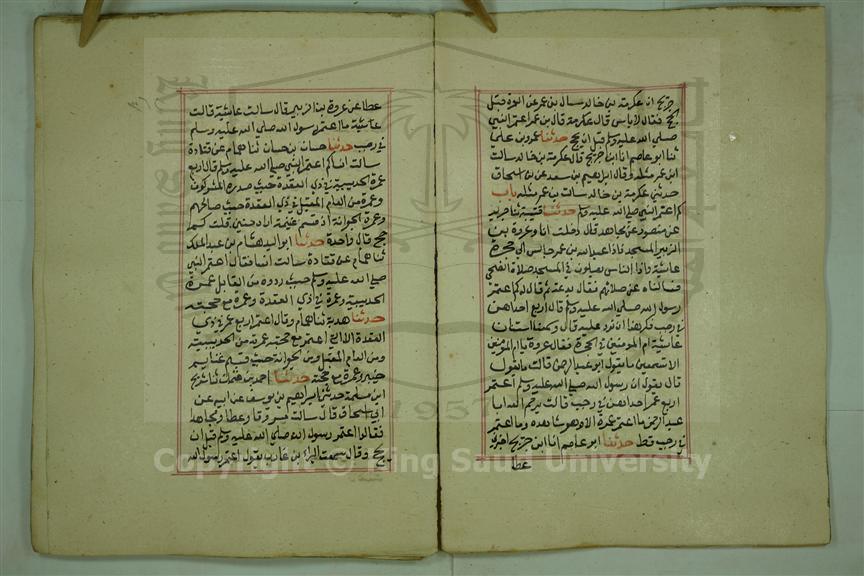 جريج ان عكرمة بن خالد سال بن عمر عن العمرة قبل
الحج فقال لا باس قال عكرمة قال بن عمر اعتمر النبي
صلى الله عليه وسلم قبل ان يحج حدثنا عمرو بن علي
ثنا ابو عاصم انا ابن جريج قال عكرمة بن خالد سالت
ابن عمر مثله وقال ابراهيم بن سعد عن بن اسحاق
حدثني عكرمة بن خالد سالت بن عمر مثله باب
كم اعتمر النبي صلى الله عليه وسلم حدثنا قتيبة ثنا جرير
عن منصور عن مجاهد قال دخلت انا وعروة بن
الزبير المسجد فاذا عبد الله بن عمر جالس الى حجرة
عايشة واذا الناس يصلون في المسجد صلاة الضحى
فسالناه عن صلاتهم فقال بدعة ثم قال له كم اعتمر
رسول الله صلى الله عليه وسلم قال اربع احداهن
في رجب فكرهنا ان نرد عليه قال وسمعنا استنان
عايشة ام المومنين في الحجرة فقال عروة يا ام المومنين
الا تسمعين ما يقول ابو عبد الرحمن قالت ما يقول
قال يقول ان رسول الله صلى الله عليه وسلم اعتمر
اربع عمر احداهن في رجب قالت يرحم الله ابا
عبد الرحمن ما اعتمر عمرة الا وهو شاهده وما اعتمر
في رجب قط حدثنا ابو عاصم انا ابن جريج اخبرني
عطا
عطا عن عروة بن الزبير قال سالت عايشة قالت
ما اعتمر رسول الله صلى الله عليه وسلم
في رجب حدثنا حسان بن حسان ثنا همام عن قتادة
سالت انسا كم اعتمر النبي صلى الله عليه وسلم قال اربع
عمرة الحديبية في ذي القعدة حيث صده المشركون
وعمرة من العام المقبل في ذي القعدة حيث صالحهم
وعمرة الجعرانة اذ قسم غنيمة اراه حنين قلت كم
حج قال واحدة حدثنا ابو الوليد هشام بن عبد الملك
ثنا همام عن قتادة سالت انسا فقال اعتمر النبي
صلى الله عليه وسلم حيث ردوه من القابل عمرة
الحديبية وعمرة في ذي القعدة وعمرة مع حجته
حدثنا هدبة ثنا همام وقال اعتمر اربع عمر في ذي
القعدة الا التي اعتمر مع حجته عمرته من الحديبية
ومن العام المقبل ومن الجعرانة حيث قسم غنايم
حنين وعمرة مع حجته حدثنا احمد بن عثمان ثنا شريح
ابن مسلمة حدثنا ابراهيم بن يوسف عن ابيه عن
ابي اسحاق قال سالت مسروقا وعطا ومجاهد
فقالوا اعتمر رسول الله صلى الله عليه وسلم قبل ان
يحج وقال سمعت البراء بن عازب يقول اعتمر رسول الله
1957
Copyright © King Saud University